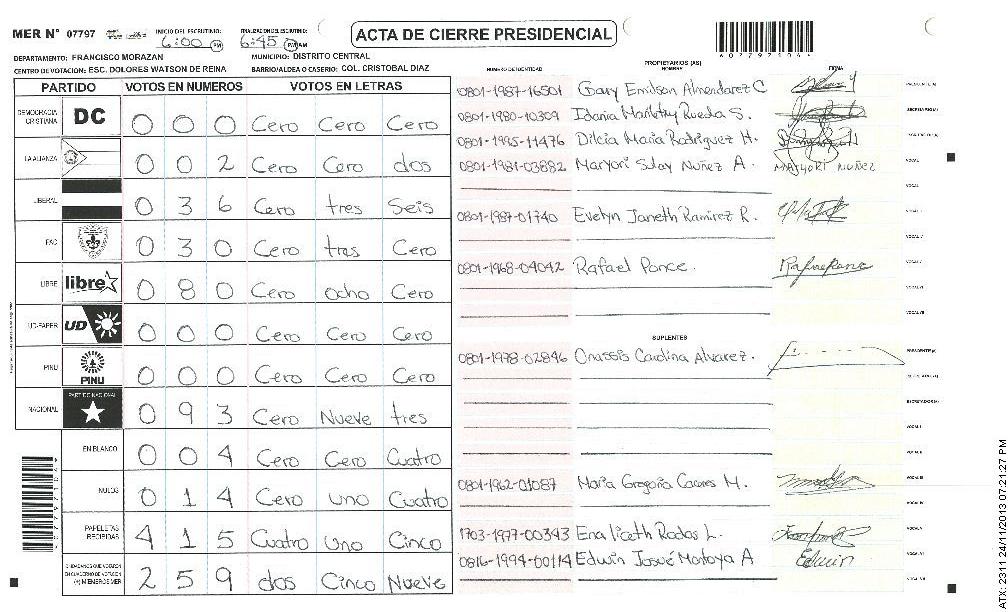 MER N° 07797 INICIO DEL ESCRUTINIO: 6:00 PM FINALIZACION DEL ESCRUTINIO: 6:45 PM AM
ACTA DE CIERRE PRESIDENCIAL
DEPARTAMENTO: FRANCISCO MORAZAN MUNICIPIO: DISTRITO CENTRAL
CENTRO DE VOTACION: ESC. DOLORES WATSON DE REINA BARRIO/ALDEA O CASERIO: COL. CRISTOBAL DIAZ
PARTIDO VOTOS EN NUMEROS VOTOS EN LETRAS
DEMOCRACIA CRISTIANA DC 0 0 0 Cero Cero Cero
LA ALIANZA 0 0 2 Cero Cero dos
LIBERAL 0 3 6 Cero tres Seis
FAC 0 3 0 Cero tres Cero
LIBRE libre 0 8 0 Cero ocho Cero
UD-FAPER UD 0 0 0 Cero Cero Cero
PINU PINU 0 0 0 Cero Cero Cero
NACIONAL PARTIDO NACIONAL 0 9 3 Cero Nueve tres
EN BLANCO 0 0 4 Cero Cero Cuatro
NULOS 0 1 4 Cero uno Cuatro
PAPELETAS RECIBIDAS 4 1 5 Cuatro uno Cinco
CIUDADANOS QUE VOTARON EN CUADERNO DE VOTACION (+) MIEMBROS MER 2 5 9 dos Cinco Nueve
NUMERO DE IDENTIDAD PROPIETARIOS (AS) NOMBRE FIRMA
0801-1987-16501 Gary Emilson Almendarez C PRESIDENTE (A)
0801-1980-10309 Idania Marlethy Rueda S. SECRETARIO (A)
0801-1995-11476 Dilcia Maria Rodriguez H. ESCRUTADOR (A)
0801-1981-03882 Maryori Suloy Nuñez A. MARYORI NUÑEZ VOCAL I
0801-1987-01740 Evelyn Janeth Ramirez R.
0801-1968-04042 Rafael Ponce. Rafael Ponce
SUPLENTES
0801-1978-02846 Onassis Carolina Alvarez. PRESIDENTE (A)
SECRETARIO (A)
ESCRUTADOR (A)
0801-1962-01087 Maria Gregoria Caceres M.
1703-1977-00343 Ena liceth Rodas L.
0816-1994-00114 Edwin Josué Montoya A Edwin
ATX: 2311 24/11/2013 07:21:27 PM